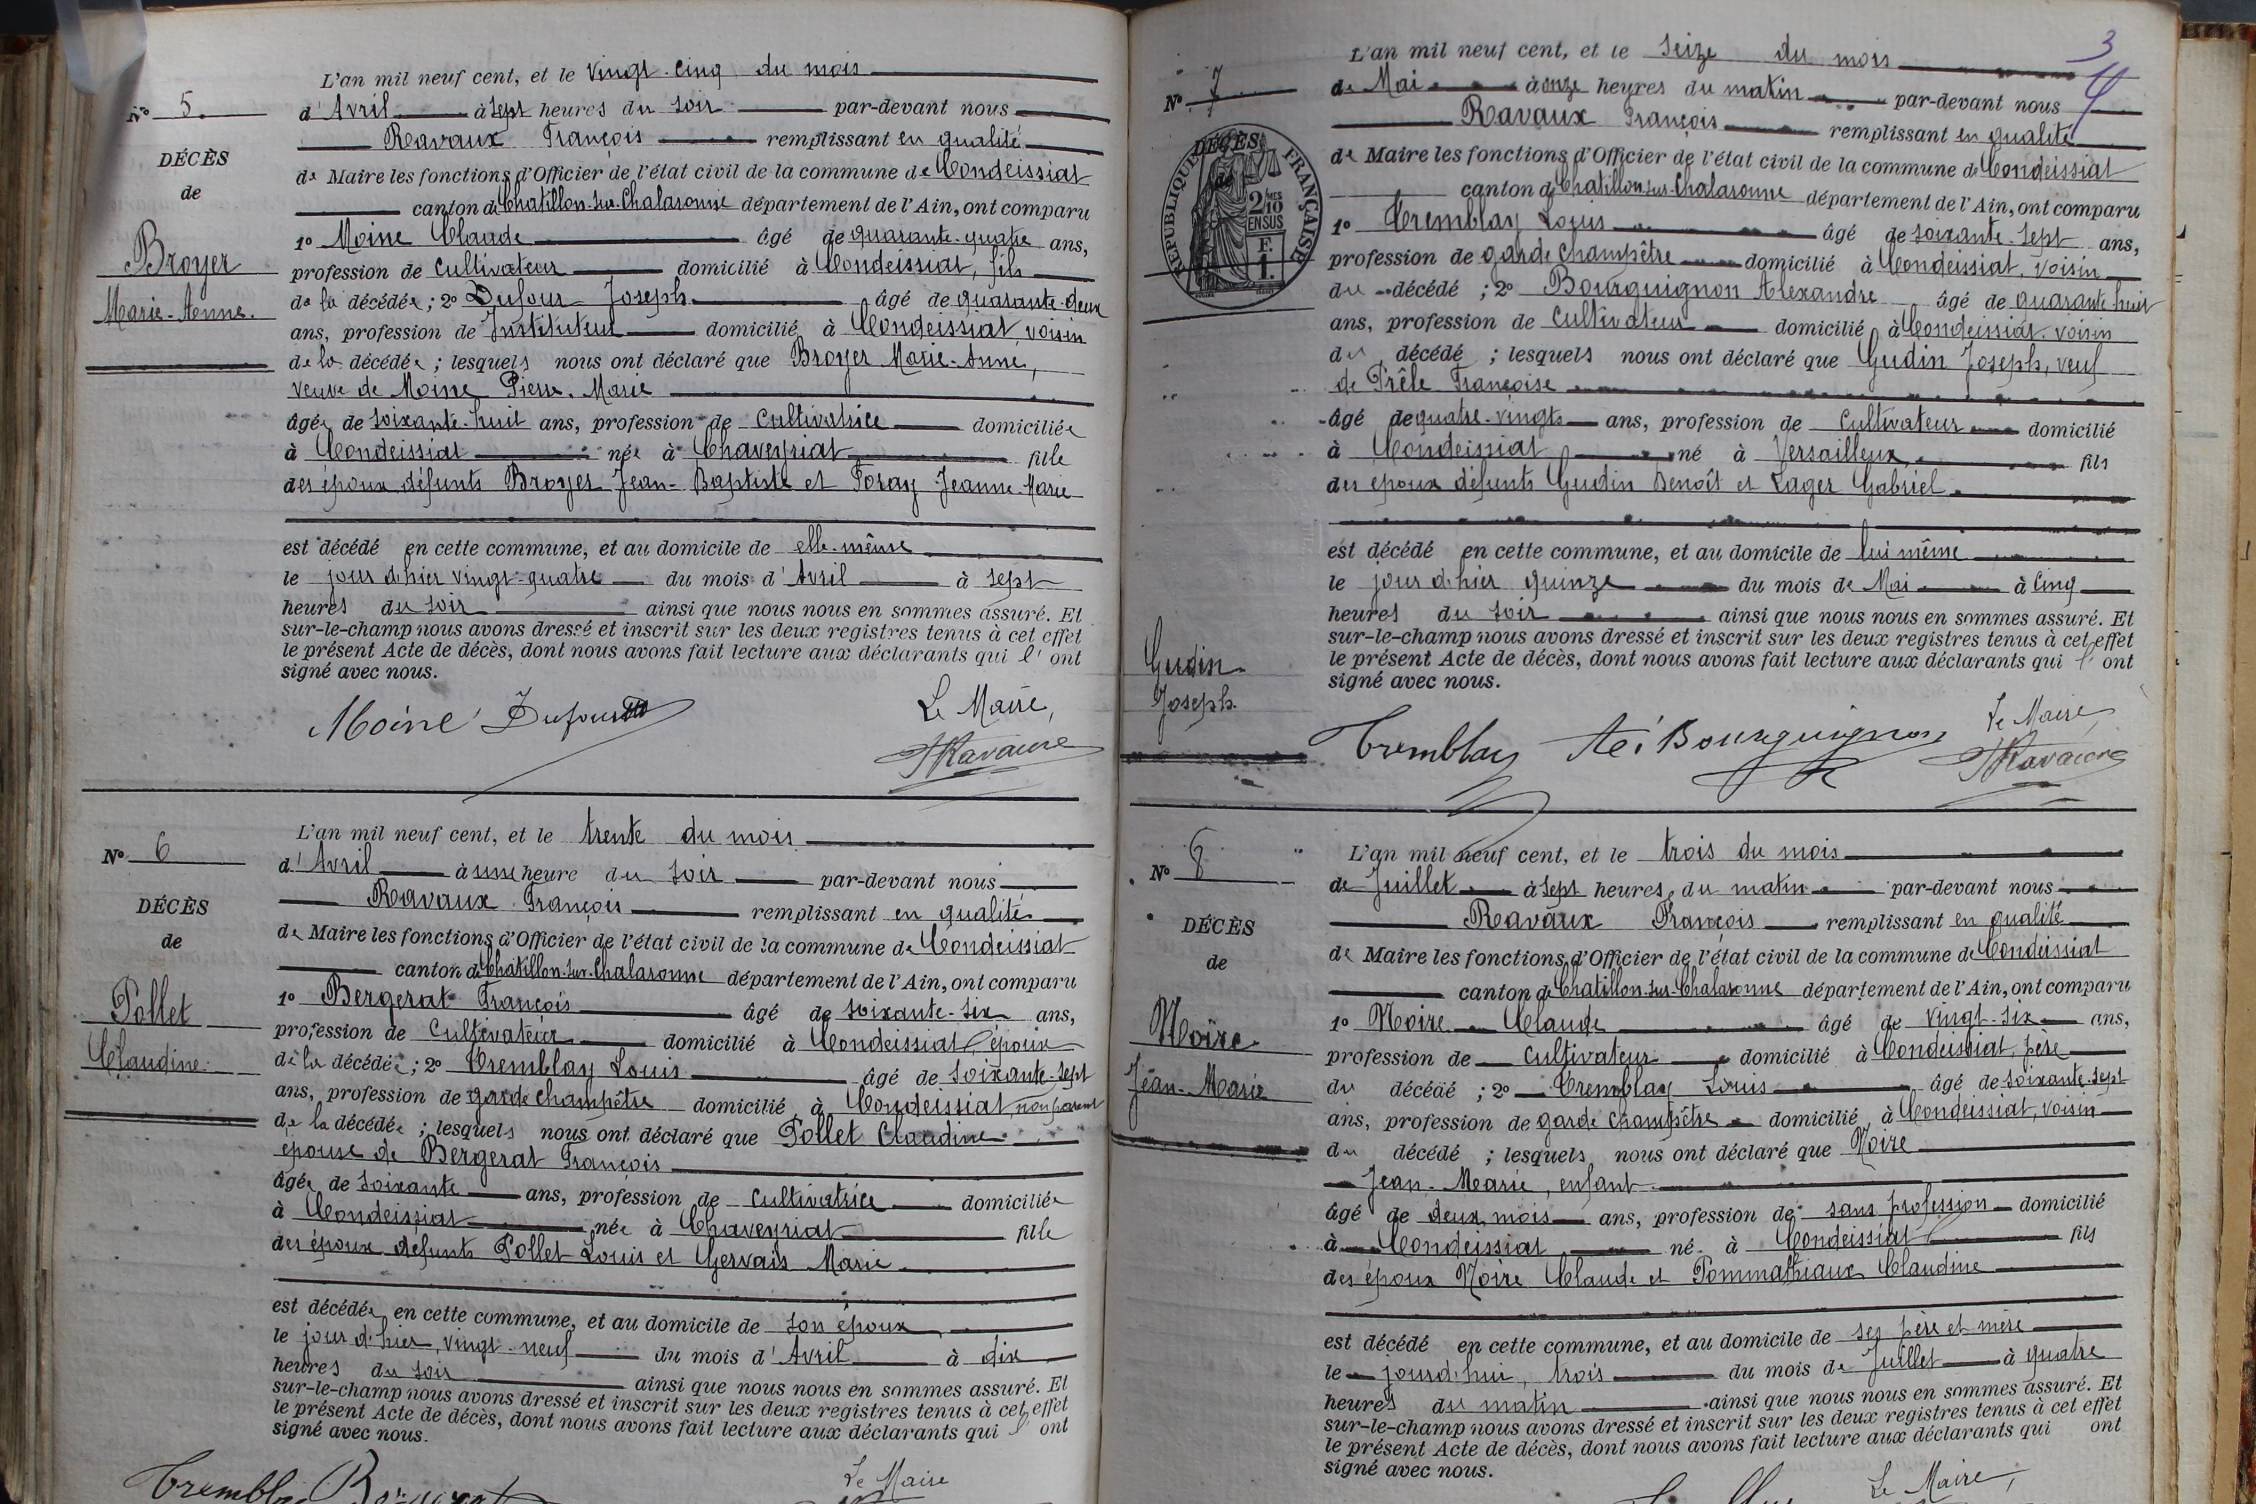 L'an mil neuf cent, et le vingt-cinq du mois
N° 5.
d'Avril à sept heures du soir par-devant nous
Ravaux François remplissant en qualité
DÉCÈS
de
de Maire les fonctions d'Officier de l'état civil de la commune de Condeissiat
canton de Chatillon-sur-Chalaronne département de l'Ain, ont comparu
1° Moine Claude âgé de quarante-quatre ans,
Broyer
profession de cultivateur domicilié à Condeissiat, fils
Marie-Anne.
de la décédée ; 2° Dufour Joseph âgé de quarante-deux
ans, profession de Instituteur domicilié à Condeissiat, voisin
de la décédée ; lesquels nous ont déclaré que Broyer Marie-Anne,
veuve de Moine Pierre-Marie
âgée de soixante-huit ans, profession de cultivatrice domiciliée
à Condeissiat née à Chaveyriat fille
des époux défunts Broyer Jean-Baptiste et Foray Jeanne-Marie
est décédé en cette commune, et au domicile de elle-même
le jour d'hier vingt-quatre du mois d'Avril à sept
heures du soir ainsi que nous nous en sommes assuré. Et
sur-le-champ nous avons dressé et inscrit sur les deux registres tenus à cet effet
le présent Acte de décès, dont nous avons fait lecture aux déclarants qui l'ont
signé avec nous.
Moine Dufour
Le Maire,
Ravaux
L'an mil neuf cent, et le trente du mois
N° 6
d'Avril à une heure du soir par-devant nous
Ravaux François remplissant en qualité
DÉCÈS
de
de Maire les fonctions d'Officier de l'état civil de la commune de Condeissiat
canton de Chatillon-sur-Chalaronne département de l'Ain, ont comparu
1° Bergerat François âgé de soixante-six ans,
Pollet
profession de cultivateur domicilié à Condeissiat, époux
Claudine
de la décédée ; 2° Tremblay Louis âgé de soixante-sept
ans, profession de garde champêtre domicilié à Condeissiat non parent
de la décédée ; lesquels nous ont déclaré que Pollet Claudine
épouse de Bergerat François
âgée de soixante ans, profession de cultivatrice domiciliée
à Condeissiat née à Chaveyriat fille
des époux défunts Pollet Louis et Gervais Marie
est décédée en cette commune, et au domicile de son époux
le jour d'hier, vingt-neuf du mois d'Avril à dix
heures du soir ainsi que nous nous en sommes assuré. Et
sur-le-champ nous avons dressé et inscrit sur les deux registres tenus à cet effet
le présent Acte de décès, dont nous avons fait lecture aux déclarants qui l'ont
signé avec nous.
Le Maire
Tremblay Bergerat
3
4
L'an mil neuf cent, et le seize du mois
N° 7
de Mai à onze heures du matin par-devant nous
Ravaux François remplissant en qualité
DÉCÈS
de
RÉPUBLIQUE FRANÇAISE
2/10 EN SUS
F. 1.
de Maire les fonctions d'Officier de l'état civil de la commune de Condeissiat
canton de Chatillon-sur-Chalaronne département de l'Ain, ont comparu
1° Tremblay Louis âgé de soixante-sept ans,
profession de garde champêtre domicilié à Condeissiat, voisin
du décédé ; 2° Bourguignon Alexandre âgé de quarante huit
ans, profession de cultivateur domicilié à Condeissiat, voisin
du décédé ; lesquels nous ont déclaré que Gudin Joseph, veuf
de Prêle Françoise
âgé de quatre-vingts ans, profession de cultivateur domicilié
à Condeissiat né à Versailleux fils
des époux défunts Gudin Benoît et Lager Gabriel
est décédé en cette commune, et au domicile de lui même
le jour d'hier quinze du mois de Mai à cinq
heures du soir ainsi que nous nous en sommes assuré. Et
sur-le-champ nous avons dressé et inscrit sur les deux registres tenus à cet effet
le présent Acte de décès, dont nous avons fait lecture aux déclarants qui l'ont
signé avec nous.
Gudin
Joseph.
Le Maire,
Tremblay Bourguignon
Ravaux
L'an mil neuf cent, et le trois du mois
N° 8
de Juillet à sept heures du matin par-devant nous
Ravaux François remplissant en qualité
DÉCÈS
de
de Maire les fonctions d'Officier de l'état civil de la commune de Condeissiat
canton de Chatillon-sur-Chalaronne département de l'Ain, ont comparu
1° Noire Claude âgé de vingt-six ans,
Noire
profession de cultivateur domicilié à Condeissiat, père
Jean-Marie
du décédé ; 2° Tremblay Louis âgé de soixante-sept
ans, profession de garde champêtre domicilié à Condeissiat, voisin
du décédé ; lesquels nous ont déclaré que Noire
Jean-Marie, enfant
âgé de deux mois ans, profession de sans profession domicilié
à Condeissiat né à Condeissiat fils
des époux Noire Claude et Pommathiaux Claudine
est décédé en cette commune, et au domicile de ses père et mère
le jourd'hui, trois du mois de Juillet à quatre
heures du matin ainsi que nous nous en sommes assuré. Et
sur-le-champ nous avons dressé et inscrit sur les deux registres tenus à cet effet
le présent Acte de décès, dont nous avons fait lecture aux déclarants qui ont
signé avec nous.
Le Maire,